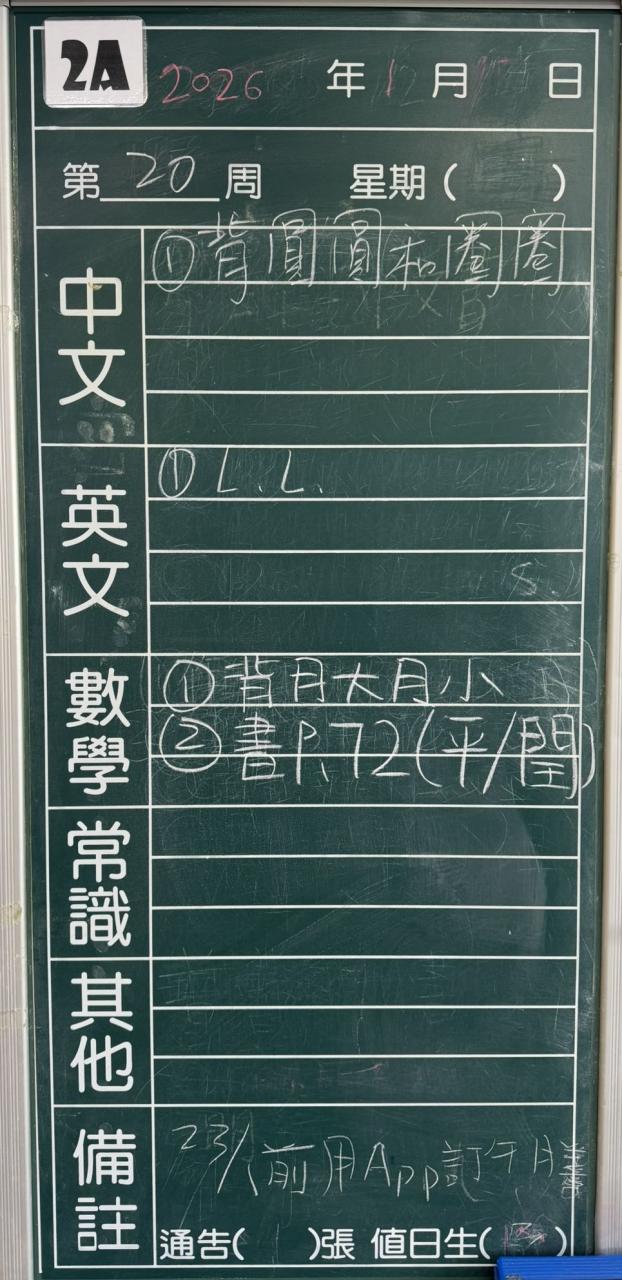 2A 2026 年 1 月 日
第 20 周 星期 ( )
中文
①背圓圓和圈圈
英文
① L.L.
數學
①背月大月小
②書P.72(平/閏)
常識
其他
備註
23/1前用App訂午膳
通告( )張 值日生( )